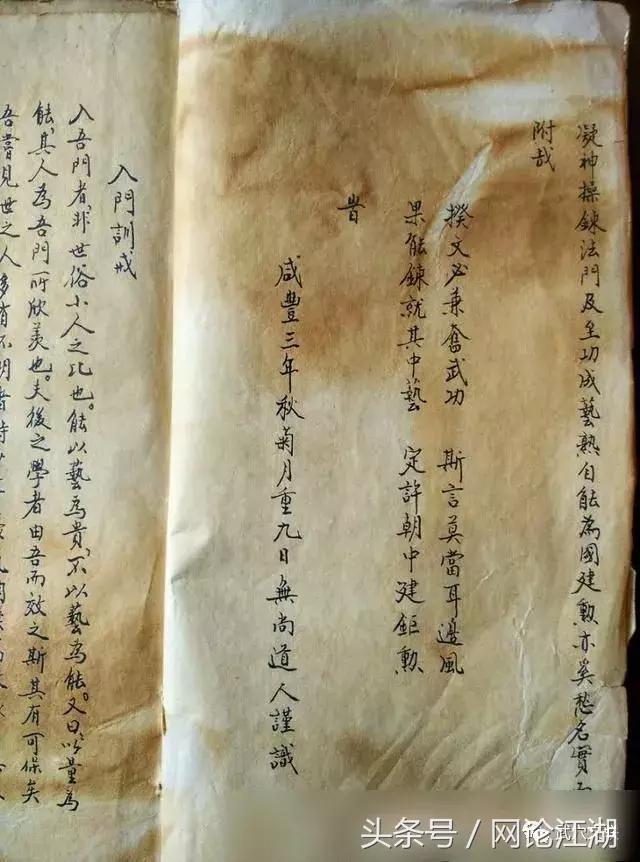 凝神操鍊法門及至功成藝熟自能為國建勳亦奚愁名實
附哉
揆文必兼奮武功 斯言莫當耳邊風
果能鍊就其中藝 定許朝中建鉅勳
旹
咸豐三年秋菊月重九日無尚道人謹識
入門訓戒
入吾門者，非世俗小人之比也。能以藝為貴，不以藝為能。又曰以量為
能，其人為吾門所欣羡也。夫後之學者由吾而效之斯其有可保矣
吾嘗見世之人多有不明者
头条号 / 网论江湖